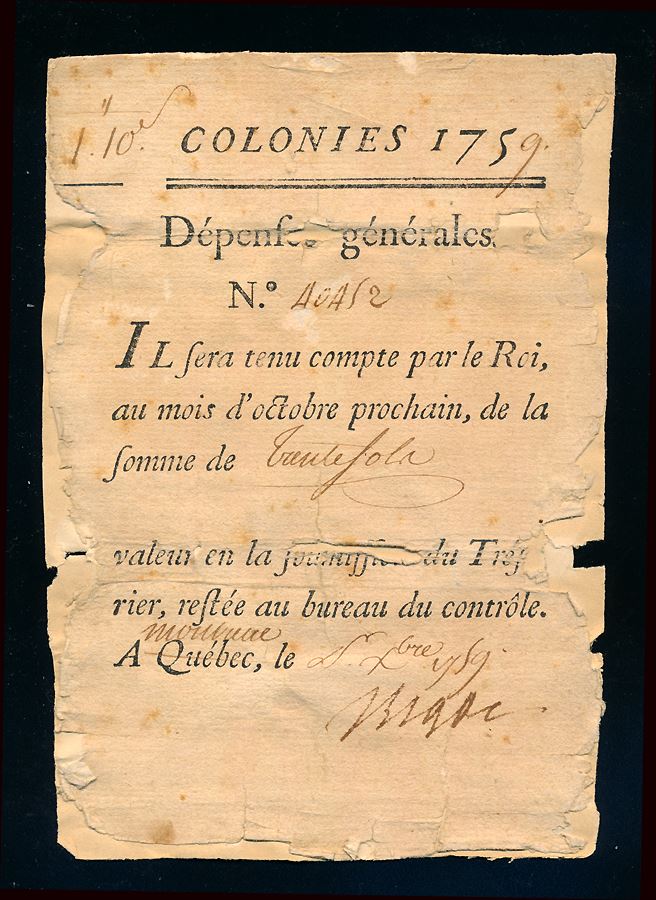 1.10ˢ. COLONIES 1759.
Dépenſes générales.
N.° 40452
IL ſera tenu compte par le Roi,
au mois d'octobre prochain, de la
ſomme de trente ſols
valeur en la ſoumiſſion du Tréſ
rier, reſtée au bureau du contrôle.
A Québec, le Xbre 1759.
Bigot